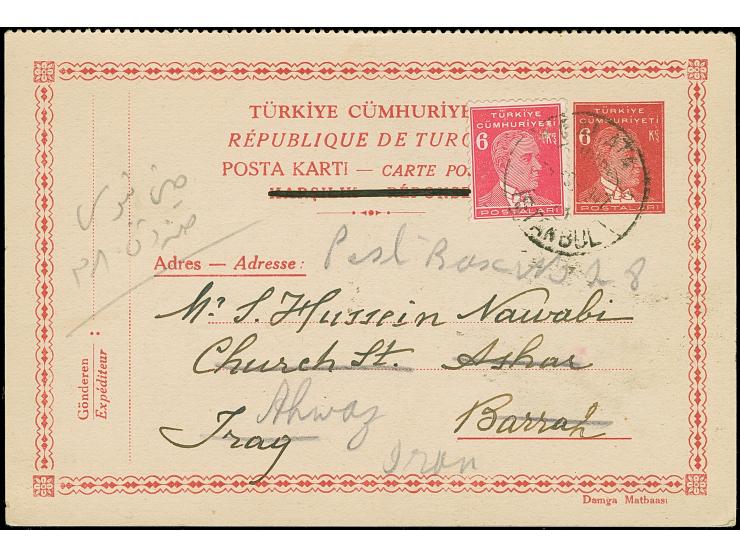 TÜRKİYE CÜMHURİYE
RÉPUBLIQUE DE TURQ
POSTA KARTI — CARTE POS
KARŞILIK — RÉPONSE
TÜRKİYE
CÜMHURİYETİ
6 KŞ
POSTALARI
TÜRKİYE
CÜMHURİYETİ
6 KŞ
POSTALARI
ANBUL
Adres — Adresse :
Post Box No 28
Mr. S. Hussein Nawabi
Church St. Ashar
Ahwaz
Barrah
Iraq
Iran
Gönderen
Expéditeur :
صندوق
Damga Matbaası